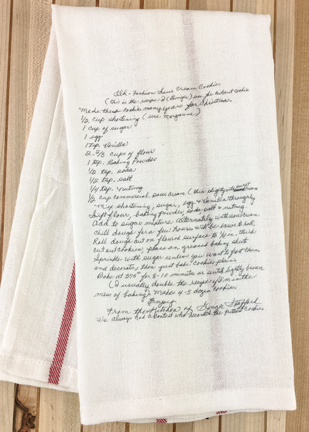 Old-Fashion Sour Cream Cookies
(This is the recipe I (always) use for cutout cookie
Made these cookies many years for Christmas.
1/2 cup shortening (use margarine)
1 cup of sugar
1 egg
1 tsp. Vanilla
2 2/3 cups of flour
1 tsp. Baking Powder
1/2 tsp. soda
1/2 tsp. salt
1/4 tsp. nutmeg
1/2 cup commercial sour cream (this
Mix shortening, sugar, egg & vanilla throughly
Sift flour, baking powder, soda salt & nutmeg
Add to sugar mixture. Alternately with sour cream
Chill dough for a few hours
Roll dough out on floured surface 1/4 in. thick
Cut out cookies, place on greased baking sheet
Sprinkle with sugar unless you want to frost them
and decorate, then just bake cookies plain.
Bake at 375° for 8-10 minutes or until lightly brown
(I usually double the recipe
baking) Makes 4-5 dozen cookies
From the kitchen of
We always had a contest who the cookies